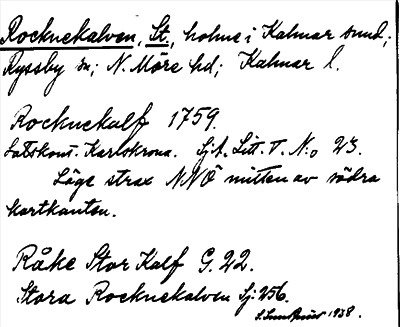 Rocknekalven, St., holme i Kalmar sund;
Ryssby sn; N. Möre hd; Kalmar l.
Rocknekalf 1759.
Lotskont. Karlskrona. Sjk. Litt. V. N:o 23.
Läge strax NNÖ mitten av södra
kartkanten.
Råke Stor Kalf G. 22.
Stora Rocknekalven Sj: 256.
1938.